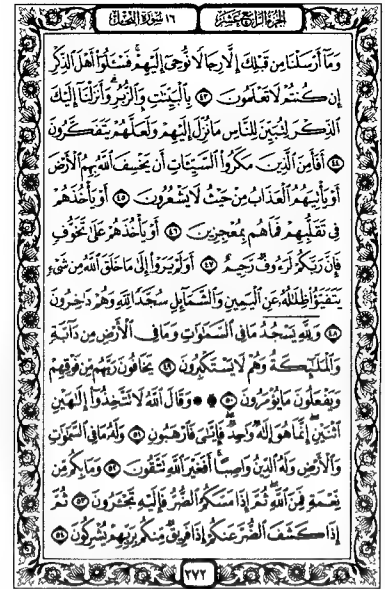 الجزء الرابع عشر
١٦ سورة النحل
وَمَآ أَرْسَلْنَا مِن قَبْلِكَ إِلَّا رِجَالًا نُّوحِىٓ إِلَيْهِمْ ۚ فَسْـَٔلُوٓا۟ أَهْلَ ٱلذِّكْرِ
إِن كُنتُمْ لَا تَعْلَمُونَ ٤٣ بِٱلْبَيِّنَـٰتِ وَٱلزُّبُرِ ۗ وَأَنزَلْنَآ إِلَيْكَ
ٱلذِّكْرَ لِتُبَيِّنَ لِلنَّاسِ مَا نُزِّلَ إِلَيْهِمْ وَلَعَلَّهُمْ يَتَفَكَّرُونَ
٤٤ أَفَأَمِنَ ٱلَّذِينَ مَكَرُوا۟ ٱلسَّيِّـَٔاتِ أَن يَخْسِفَ ٱللَّهُ بِهِمُ ٱلْأَرْضَ
أَوْ يَأْتِيَهُمُ ٱلْعَذَابُ مِنْ حَيْثُ لَا يَشْعُرُونَ ٤٥ أَوْ يَأْخُذَهُمْ
فِى تَقَلُّبِهِمْ فَمَا هُم بِمُعْجِزِينَ ٤٦ أَوْ يَأْخُذَهُمْ عَلَىٰ تَخَوُّفٍ
فَإِنَّ رَبَّكُمْ لَرَءُوفٌ رَّحِيمٌ ٤٧ أَوَلَمْ يَرَوْا۟ إِلَىٰ مَا خَلَقَ ٱللَّهُ مِن شَىْءٍ
يَتَفَيَّؤُا۟ ظِلَـٰلُهُۥ عَنِ ٱلْيَمِينِ وَٱلشَّمَآئِلِ سُجَّدًا لِّلَّهِ وَهُمْ دَٰخِرُونَ
٤٨ وَلِلَّهِ يَسْجُدُ مَا فِى ٱلسَّمَـٰوَٰتِ وَمَا فِى ٱلْأَرْضِ مِن دَآبَّةٍ
وَٱلْمَلَـٰٓئِكَةُ وَهُمْ لَا يَسْتَكْبِرُونَ ٤٩ يَخَافُونَ رَبَّهُم مِّن فَوْقِهِمْ
وَيَفْعَلُونَ مَا يُؤْمَرُونَ ۩ ٥٠ ۞ وَقَالَ ٱللَّهُ لَا تَتَّخِذُوٓا۟ إِلَـٰهَيْنِ
ٱثْنَيْنِ ۖ إِنَّمَا هُوَ إِلَـٰهٌ وَٰحِدٌ ۖ فَإِيَّـٰىَ فَٱرْهَبُونِ ٥١ وَلَهُۥ مَا فِى ٱلسَّمَـٰوَٰتِ
وَٱلْأَرْضِ وَلَهُ ٱلدِّينُ وَاصِبًا ۚ أَفَغَيْرَ ٱللَّهِ تَتَّقُونَ ٥٢ وَمَا بِكُم مِّن
نِّعْمَةٍ فَمِنَ ٱللَّهِ ۖ ثُمَّ إِذَا مَسَّكُمُ ٱلضُّرُّ فَإِلَيْهِ تَجْـَٔرُونَ ٥٣ ثُمَّ
إِذَا كَشَفَ ٱلضُّرَّ عَنكُمْ إِذَا فَرِيقٌ مِّنكُم بِرَبِّهِمْ يُشْرِكُونَ ٥٤
٢٧٢